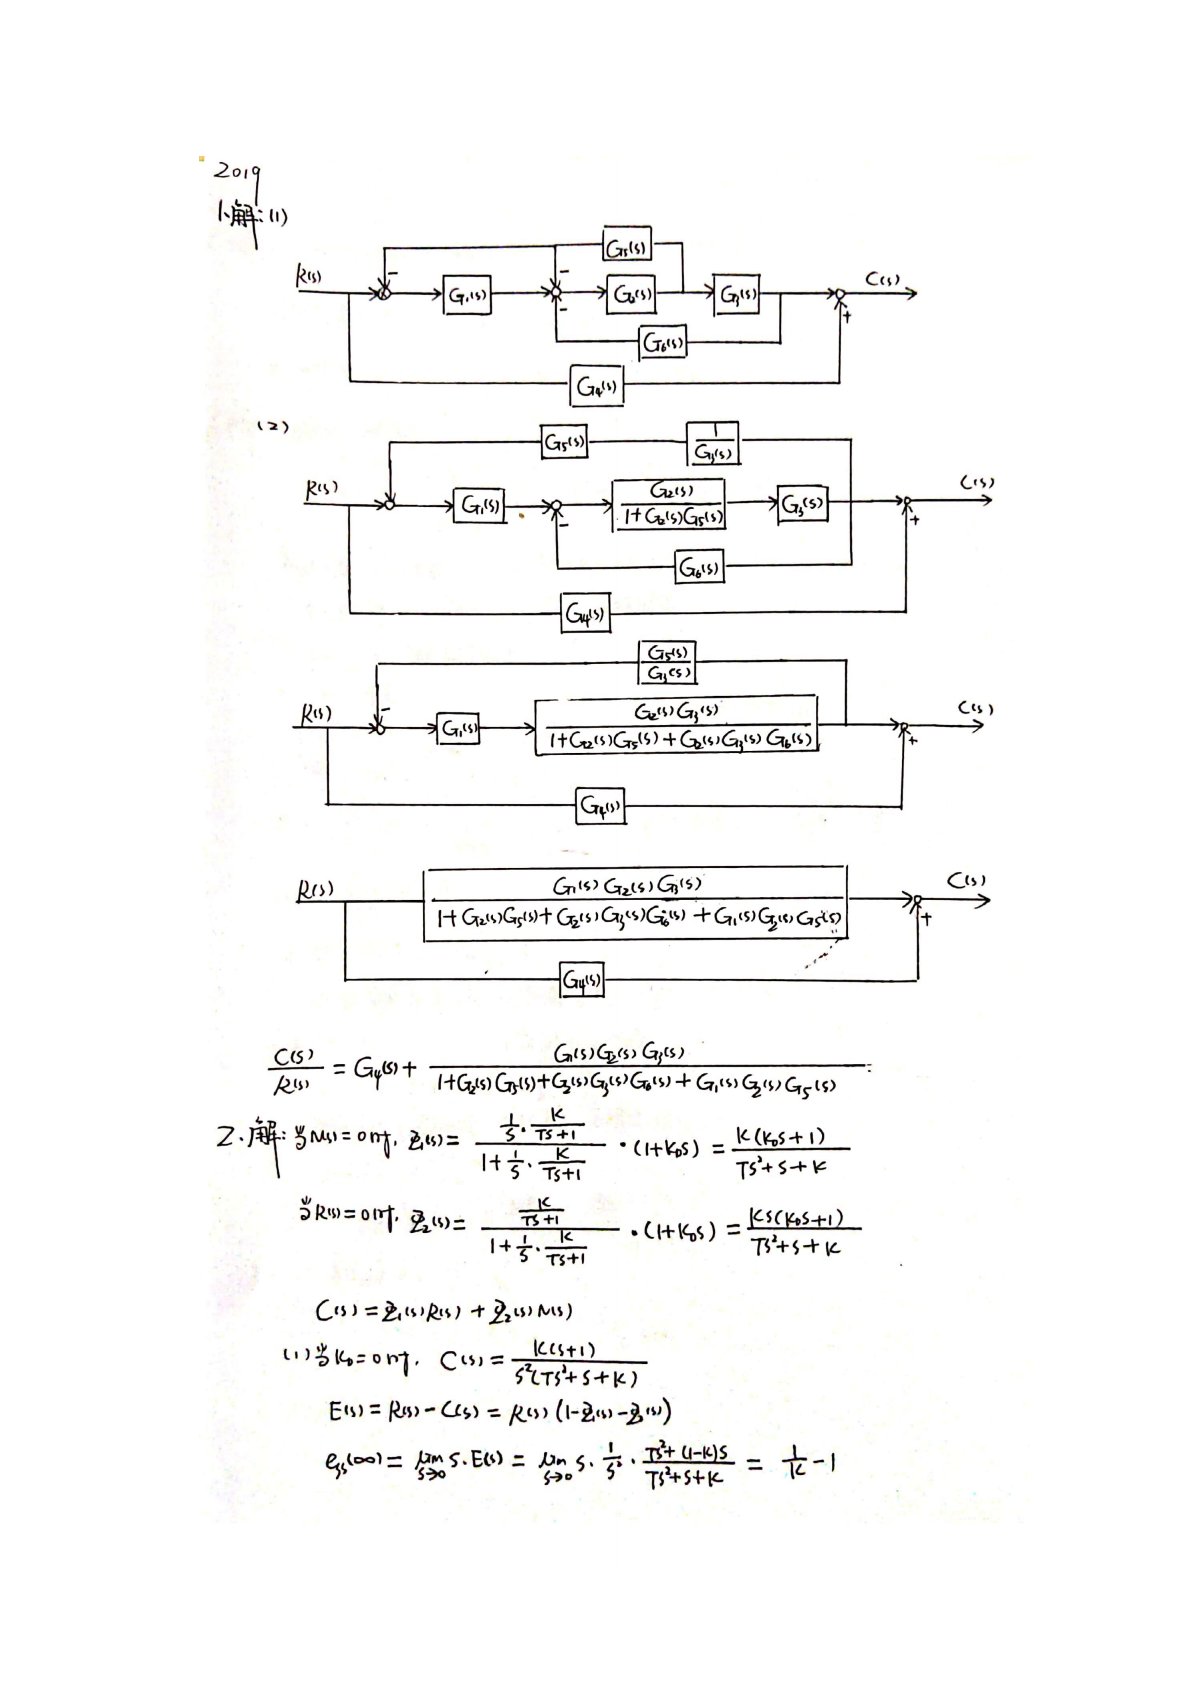 2019
1、解:(1)
G5(s)
R(s) - G1(s) - - G2(s) G3(s) C(s)
G6(s) +
G4(s)
(2)
G5(s) 1/G3(s)
R(s) G1(s) - G2(s)/(1+G2(s)G5(s)) G3(s) C(s)
G6(s) +
G4(s)
G5(s)/G3(s)
R(s) - G1(s) G2(s)G3(s)/(1+G2(s)G5(s)+G2(s)G3(s)G6(s)) C(s)
+
G4(s)
R(s) G1(s)G2(s)G3(s)/(1+G2(s)G5(s)+G2(s)G3(s)G6(s)+G1(s)G2(s)G5(s)) C(s)
+
G4(s)
C(s)/R(s) = G4(s) + G1(s)G2(s)G3(s)/(1+G2(s)G5(s)+G2(s)G3(s)G6(s)+G1(s)G2(s)G5(s))
2、解:当N(s)=0时, Φ1(s) = (1/s · K/(Ts+1))/(1+1/s · K/(Ts+1)) · (1+K0s) = K(K0s+1)/(Ts²+s+K)
当R(s)=0时, Φ2(s) = (K/(Ts+1))/(1+1/s · K/(Ts+1)) · (1+K0s) = Ks(K0s+1)/(Ts²+s+K)
C(s) = Φ1(s)R(s) + Φ2(s)N(s)
(1)当K0=0时, C(s) = K(s+1)/(s²(Ts²+s+K))
E(s) = R(s) - C(s) = R(s)(1-Φ1(s)-Φ2(s))
ess(∞) = lim s→0 s·E(s) = lim s→0 s · 1/s² · (Ts²+(1-K)s)/(Ts²+s+K) = 1/K - 1